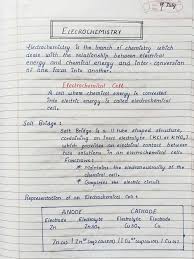 ELECTROCHEMISTRY
Electrochemistry is the branch of chemistry which
deals with the relationship between electrical
energy and chemical energy and inter-conversion
of one form into another.
Electrochemical Cell
A cell where chemical energy is converted
into electric energy is called electrochemical
cell.
Salt Bridge :
Salt Bridge is a U tube shaped structure,
containing an inert electrolyte (KCl or KNO3)
which provides an electrical contact between
two solutions in an electrochemical cell.
Functions :
Maintains the electroneutrality of the
chemical cell.
Completes the electric circuit
Representation of an Electrochemical Cell :
ANODE CATHODE
Electrode Electrolyte Electrolyte Electrode
Zn ZnSO4 CuSO4 Cu